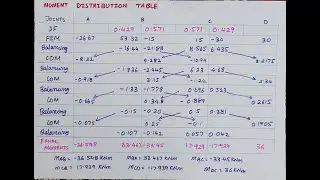 MOMENT DISTRIBUTION TABLE
JOINTS A B C D
DF 0.429 0.571 0.571 0.429
FEM -26.67 53.33 -15 15 -30 30
Balancing -16.44 -21.88 8.565 6.435
COM -8.22 4.282 -10.94 3.2175
Balancing -1.836 -2.445 6.23 4.68
COM -0.918 3.115 -1.22 2.34
Balancing -1.33 -1.778 0.696 0.523
COM -0.665 0.348 -0.889 0.2615
Balancing -0.15 -0.20 0.5 0.381
COM -0.075 0.25 -0.1 0.1905
Balancing -0.107 -0.142 0.057 0.042
FINAL MOMENTS -36.548 33.467 -33.45 17.939 -17.939 36
MAB = -36.548 KNm MBA = 33.467 KNm MBC = -33.45 KNm
MCB = 17.939 KNm MCD = -17.939 KNm MDC = 36 KNm